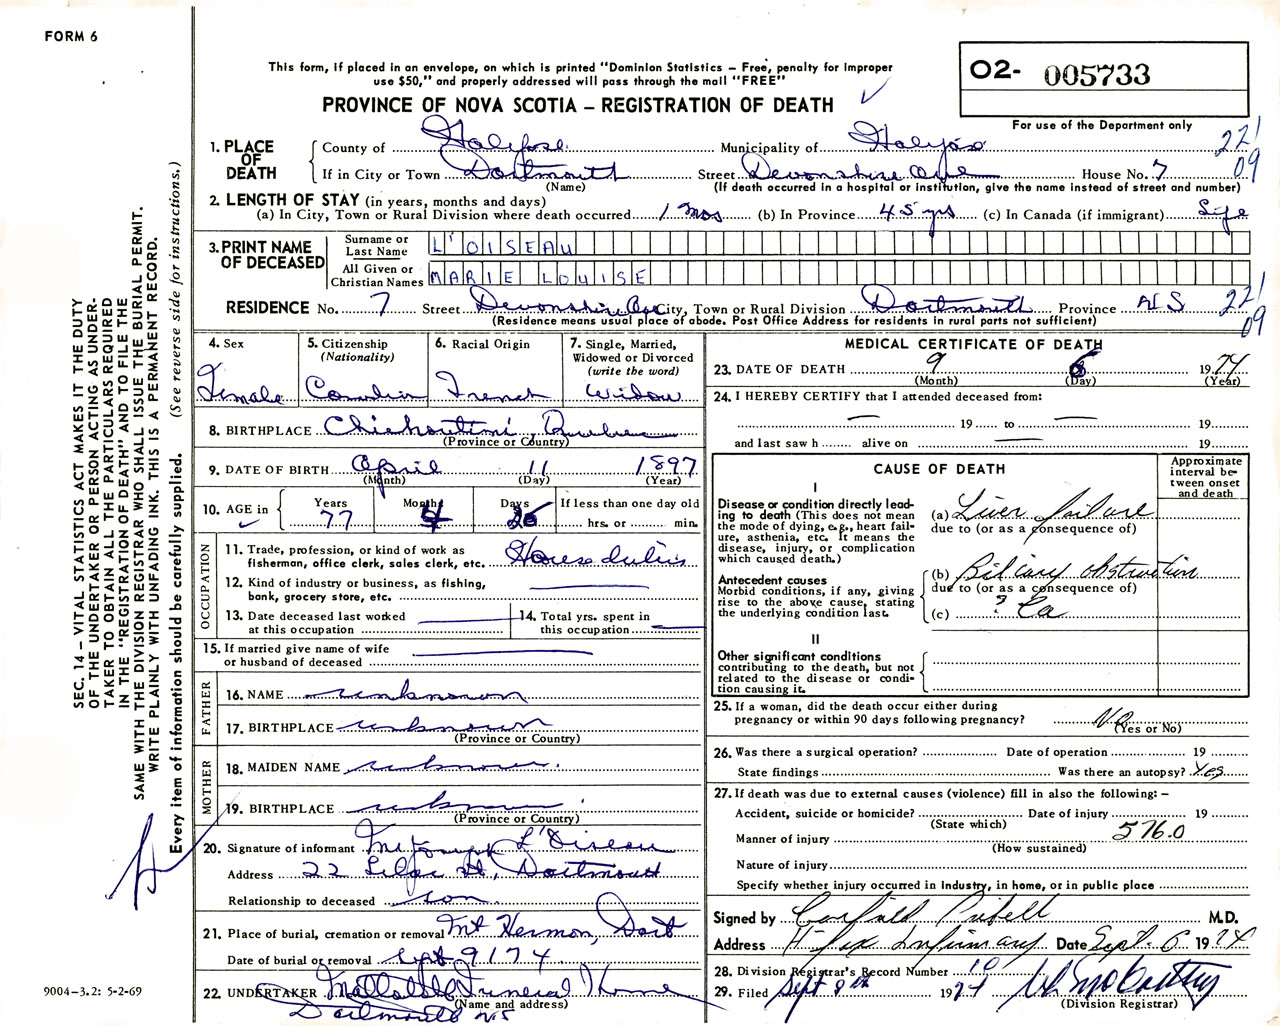 FORM 6
This form, if placed in an envelope, on which is printed "Dominion Statistics – Free, penalty for improper
use $50," and properly addressed will pass through the mail "FREE"
PROVINCE OF NOVA SCOTIA – REGISTRATION OF DEATH
02- 005733
For use of the Department only
221
09
1. PLACE OF DEATH
County of Halifax Municipality of Halifax
If in City or Town Dartmouth Street Devonshire Ave House No. 7
(Name) (If death occurred in a hospital or institution, give the name instead of street and number)
2. LENGTH OF STAY (in years, months and days)
(a) In City, Town or Rural Division where death occurred 1 mos (b) In Province 45 yrs (c) In Canada (if immigrant) Life
3. PRINT NAME OF DECEASED
Surname or Last Name L'OISEAU
All Given or Christian Names MARIE LOUISE
RESIDENCE No. 7 Street Devonshire Ave City, Town or Rural Division Dartmouth Province NS
221
09
(Residence means usual place of abode. Post Office Address for residents in rural parts not sufficient)
4. Sex
Female
5. Citizenship
(Nationality)
Canadian
6. Racial Origin
French
7. Single, Married,
Widowed or Divorced
(write the word)
Widow
8. BIRTHPLACE Chickoutimi Quebec
(Province or Country)
9. DATE OF BIRTH April 11 1897
(Month) (Day) (Year)
10. AGE in
Years 77
Months 4
Days
If less than one day old
hrs. or min.
OCCUPATION
11. Trade, profession, or kind of work as
fisherman, office clerk, sales clerk, etc. House duties
12. Kind of industry or business, as fishing,
bank, grocery store, etc.
13. Date deceased last worked
at this occupation
14. Total yrs. spent in
this occupation
15. If married give name of wife
or husband of deceased
FATHER
16. NAME unknown
17. BIRTHPLACE unknown
(Province or Country)
MOTHER
18. MAIDEN NAME unknown
19. BIRTHPLACE unknown
(Province or Country)
20. Signature of informant Mr Joseph L'Oiseau
Address 22 Lilac St, Dartmouth
Relationship to deceased son
21. Place of burial, cremation or removal Mt Hermon, Dart
Date of burial or removal Sept 9 / 74
22. UNDERTAKER Mattatall Funeral Home
(Name and address)
Dartmouth NS
MEDICAL CERTIFICATE OF DEATH
23. DATE OF DEATH 9 6 1974
(Month) (Day) (Year)
24. I HEREBY CERTIFY that I attended deceased from:
19 to 19
and last saw h alive on 19
CAUSE OF DEATH
Approximate interval between onset and death
I
Disease or condition directly leading to death (This does not mean the mode of dying, e.g., heart failure, asthenia, etc. It means the disease, injury, or complication which caused death.)
(a) Liver failure
due to (or as a consequence of)
Antecedent causes
Morbid conditions, if any, giving rise to the above cause, stating the underlying condition last.
(b) Biliary obstruction
due to (or as a consequence of)
(c) ? Ca
II
Other significant conditions
contributing to the death, but not related to the disease or condition causing it.
25. If a woman, did the death occur either during
pregnancy or within 90 days following pregnancy? No
(Yes or No)
26. Was there a surgical operation? Date of operation 19
State findings Was there an autopsy? Yes
27. If death was due to external causes (violence) fill in also the following: –
Accident, suicide or homicide? Date of injury 19
(State which)
Manner of injury 576.0
(How sustained)
Nature of injury
Specify whether injury occurred in industry, in home, or in public place
Signed by M.D.
Address H'fax Infirmary Date Sept. 6 1974
28. Division Registrar's Record Number 10
29. Filed Sept 8th 1974
(Division Registrar)
SEC. 14 – VITAL STATISTICS ACT MAKES IT THE DUTY
OF THE UNDERTAKER OR PERSON ACTING AS UNDER-
TAKER TO OBTAIN ALL THE PARTICULARS REQUIRED
IN THE "REGISTRATION OF DEATH" AND TO FILE THE
SAME WITH THE DIVISION REGISTRAR WHO SHALL ISSUE THE BURIAL PERMIT.
WRITE PLAINLY WITH UNFADING INK. THIS IS A PERMANENT RECORD.
Every item of information should be carefully supplied. (See reverse side for instructions,)
9004-3.2: 5-2-69